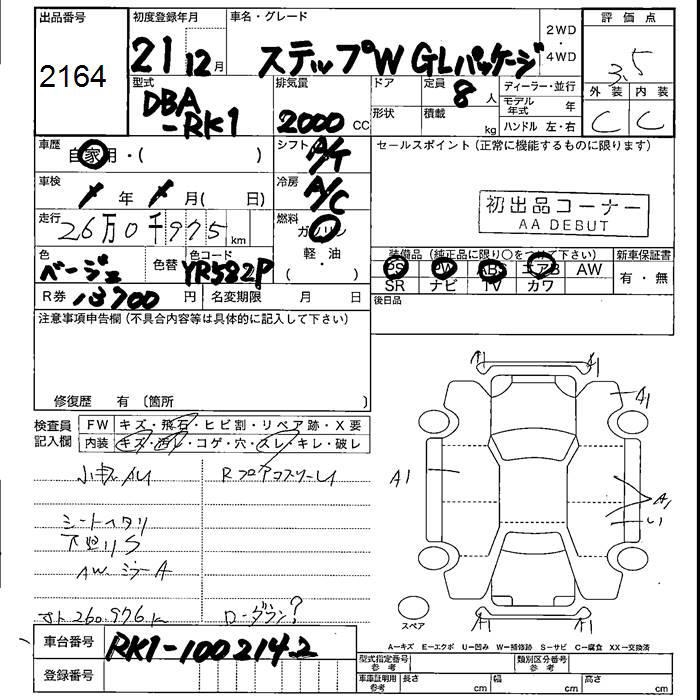 出品番号
2164
初度登録年月
21 12月
車名・グレード
ステップW GLパッケージ
2WD
・
4WD
評価点
3.5
外装 内装
C C
型式
DBA
-RK1
排気量
2000 CC
ドア
形状
定員
8 人
積載
kg
ディーラー・並行
モデル年式 年
ハンドル 左・右
車歴
自家用・( )
シフト
A/T
セールスポイント(正常に機能するものに限ります)
車検
年 月( 日)
冷房
A/C
初出品コーナー
AA DEBUT
走行
26万0千975 km
燃料
ガソリン
軽・油
( ・ )
色
ベージュ
色替
色コード
YR582P
装備品(純正品に限り○をつけて下さい)
PS PW ABS エアB AW
SR ナビ TV カワ
新車保証書
有・無
R券 13700 円
名変期限 月 日
後日品
注意事項申告欄(不具合内容等は具体的に記入して下さい)
修復歴 有〔箇所 〕
検査員
記入欄
FW キズ・飛石・ヒビ割・リペア跡・X要
内装 キズ・汚レ・コゲ・穴・スレ・キレ・破レ
シートヘタリ
AW ミラーA
260.976 K
ローダウン?
A1
A1
A1
A1
A1
A1
A1
スペア
A=キズ E=エクボ U=凹み W=補修跡 S=サビ C=腐食 XX=交換済
車台番号
RK1-1002142
登録番号
型式指定番号
参考
類別区分番号
参考
車庫証明用
参考
長さ cm
幅 cm
高さ cm